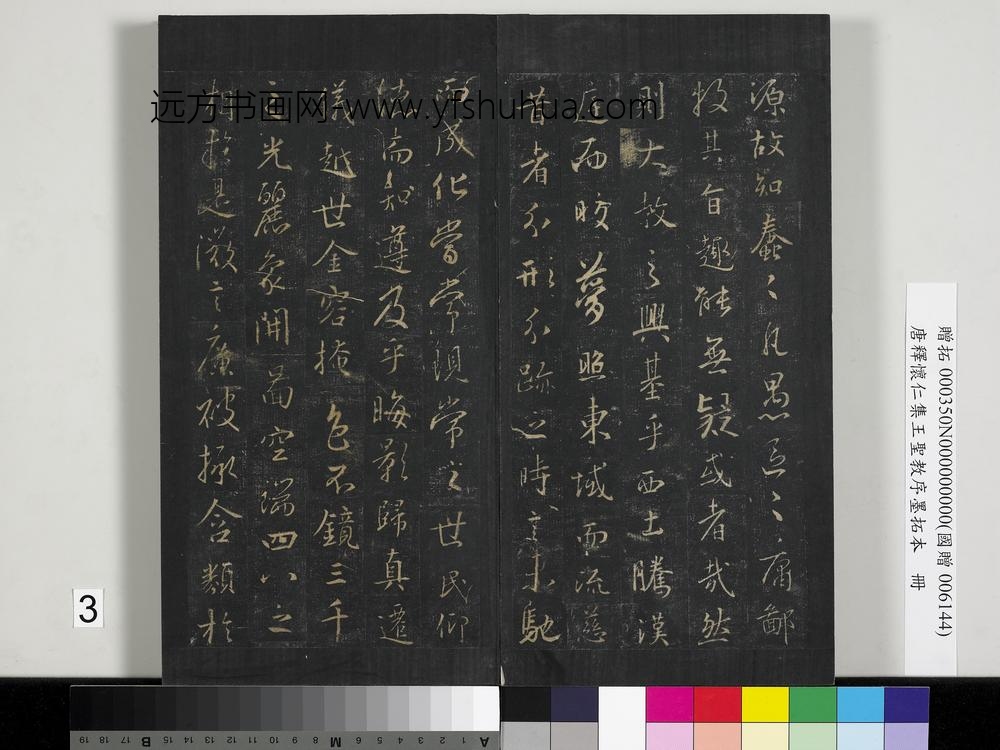 源故知蠢〻凡愚區〻庸鄙
投其旨趣能無疑或者哉然
則大教之興基乎西土騰漢
庭而皎夢照東域而流慈
昔者分形分跡之時言未馳
而成化當常現常之世民仰
德而知遵及乎晦影歸真遷
儀越世金容掩色不鏡三千
之光麗象開圖空端四八之
相於是微言廣被拯含類於
远方书画网 www.yfshuhua.com
贈拓 000350N000000000(國贈 006144)
唐釋懷仁集王聖教序墨拓本 冊
3
19 18 17 16 15 14 13 12 11 10 B 9 8 M 7 6 5 4 3 2 1 A